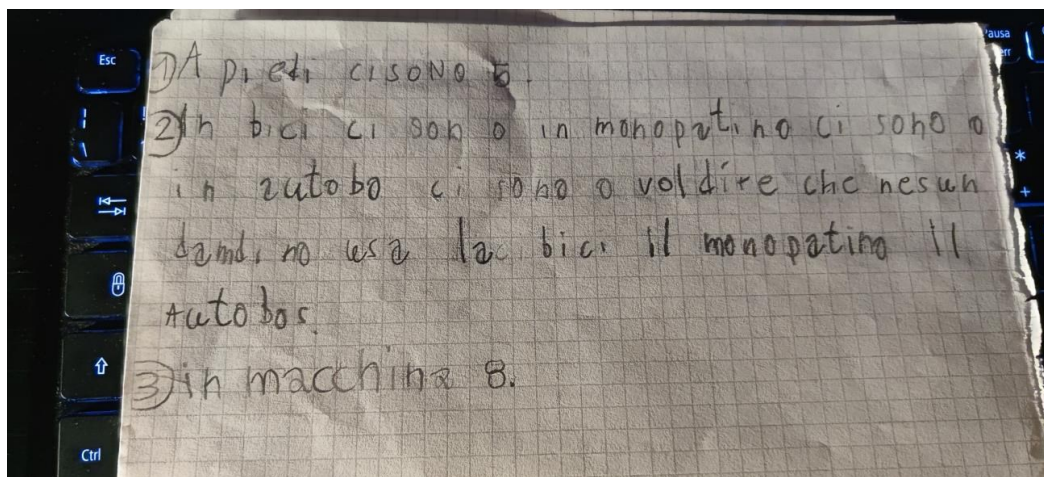 Esc
ausa
1) A piedi ci SONO 5.
2) In bici ci son o in monopatino ci sono o
in autobo ci sono o vol dire che nesun
bamdino usa la bici il monopatino il
Autobos.
3) in macchina 8.
*
+
Ctrl